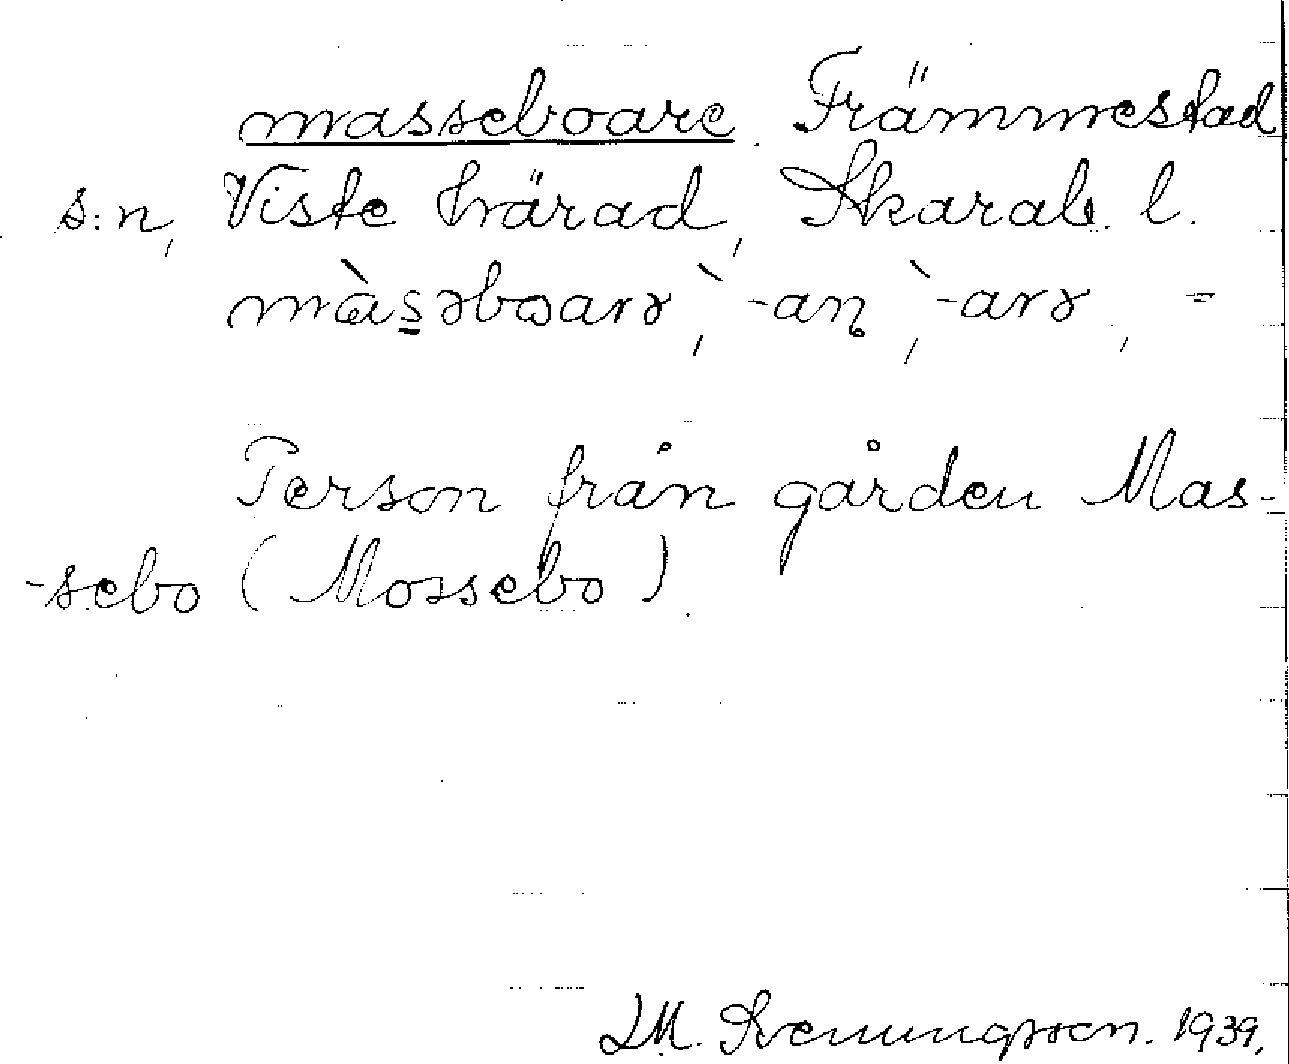 masseboare. Främmestad
s:n, Viste härad, Skarab. l.
màs̲əboarə, `-an̥, `-arə, =
Person från gården Mas-
-sebo (Mossebo).
1939.